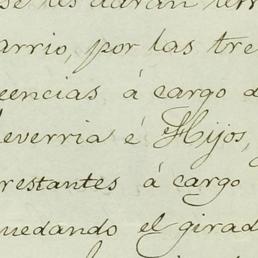 se les darán terr
arrio, por las tre
cencias á cargo d
everria é Hijos,
restantes á cargo
quedando el girad